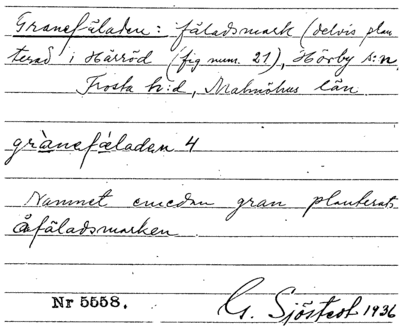 Granefäladen: fäladsmark (delvis plan
terad i Härröd (fig num. 21), Hörby s:n
Frosta h:d, Malmöhus län.
grànefǽladen 4
Namnet emedan gran planterats
å fäladsmarken
Nr 5558. G. Sjöstedt 1936